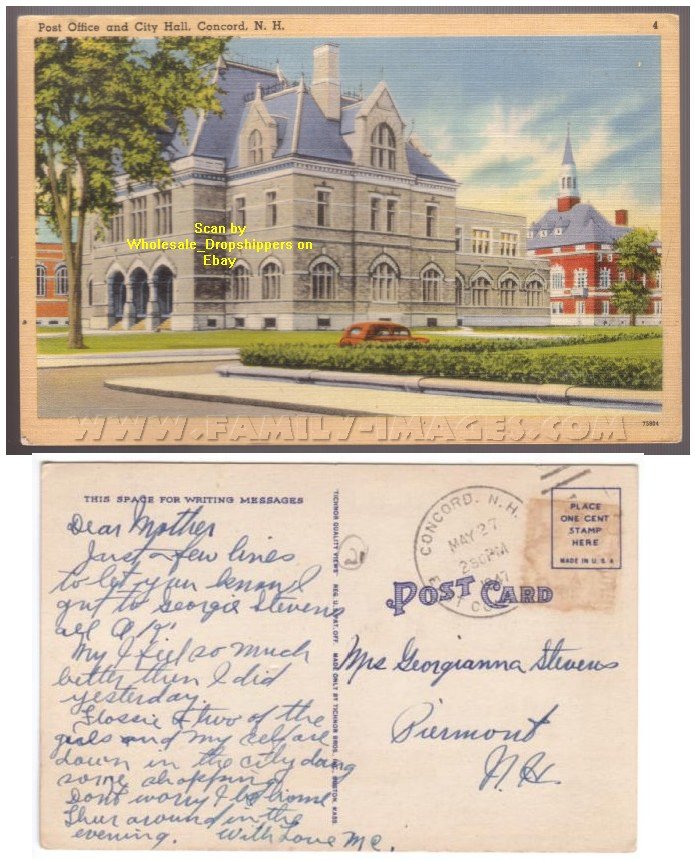 Post Office and City Hall, Concord, N. H.
4
Scan by
Wholesale_Dropshippers on
Ebay
75904
WWW.FAMILY-IMAGES.COM
THIS SPACE FOR WRITING MESSAGES
Dear Mother
Just a few lines
to let you know I
got to Georgie Stevens
all O.K.
My I feel so much
better then I did
yesterday.
Flossie & two of the
girls and my self are
down in the city doing
some shopping
Dont worry I be home
Thur around in the
evening. With Love Mc.
TICHNOR QUALITY VIEWS REG. U. S. PAT. OFF. MADE ONLY BY TICHNOR BROS. INC., BOSTON, MASS.
CONCORD, N.H.
MAY 27
2 30 PM
1947
PLACE
ONE CENT
STAMP
HERE
MADE IN U.S.A
POST CARD
Mrs Georgianna Stevens
Piermont
N.H.